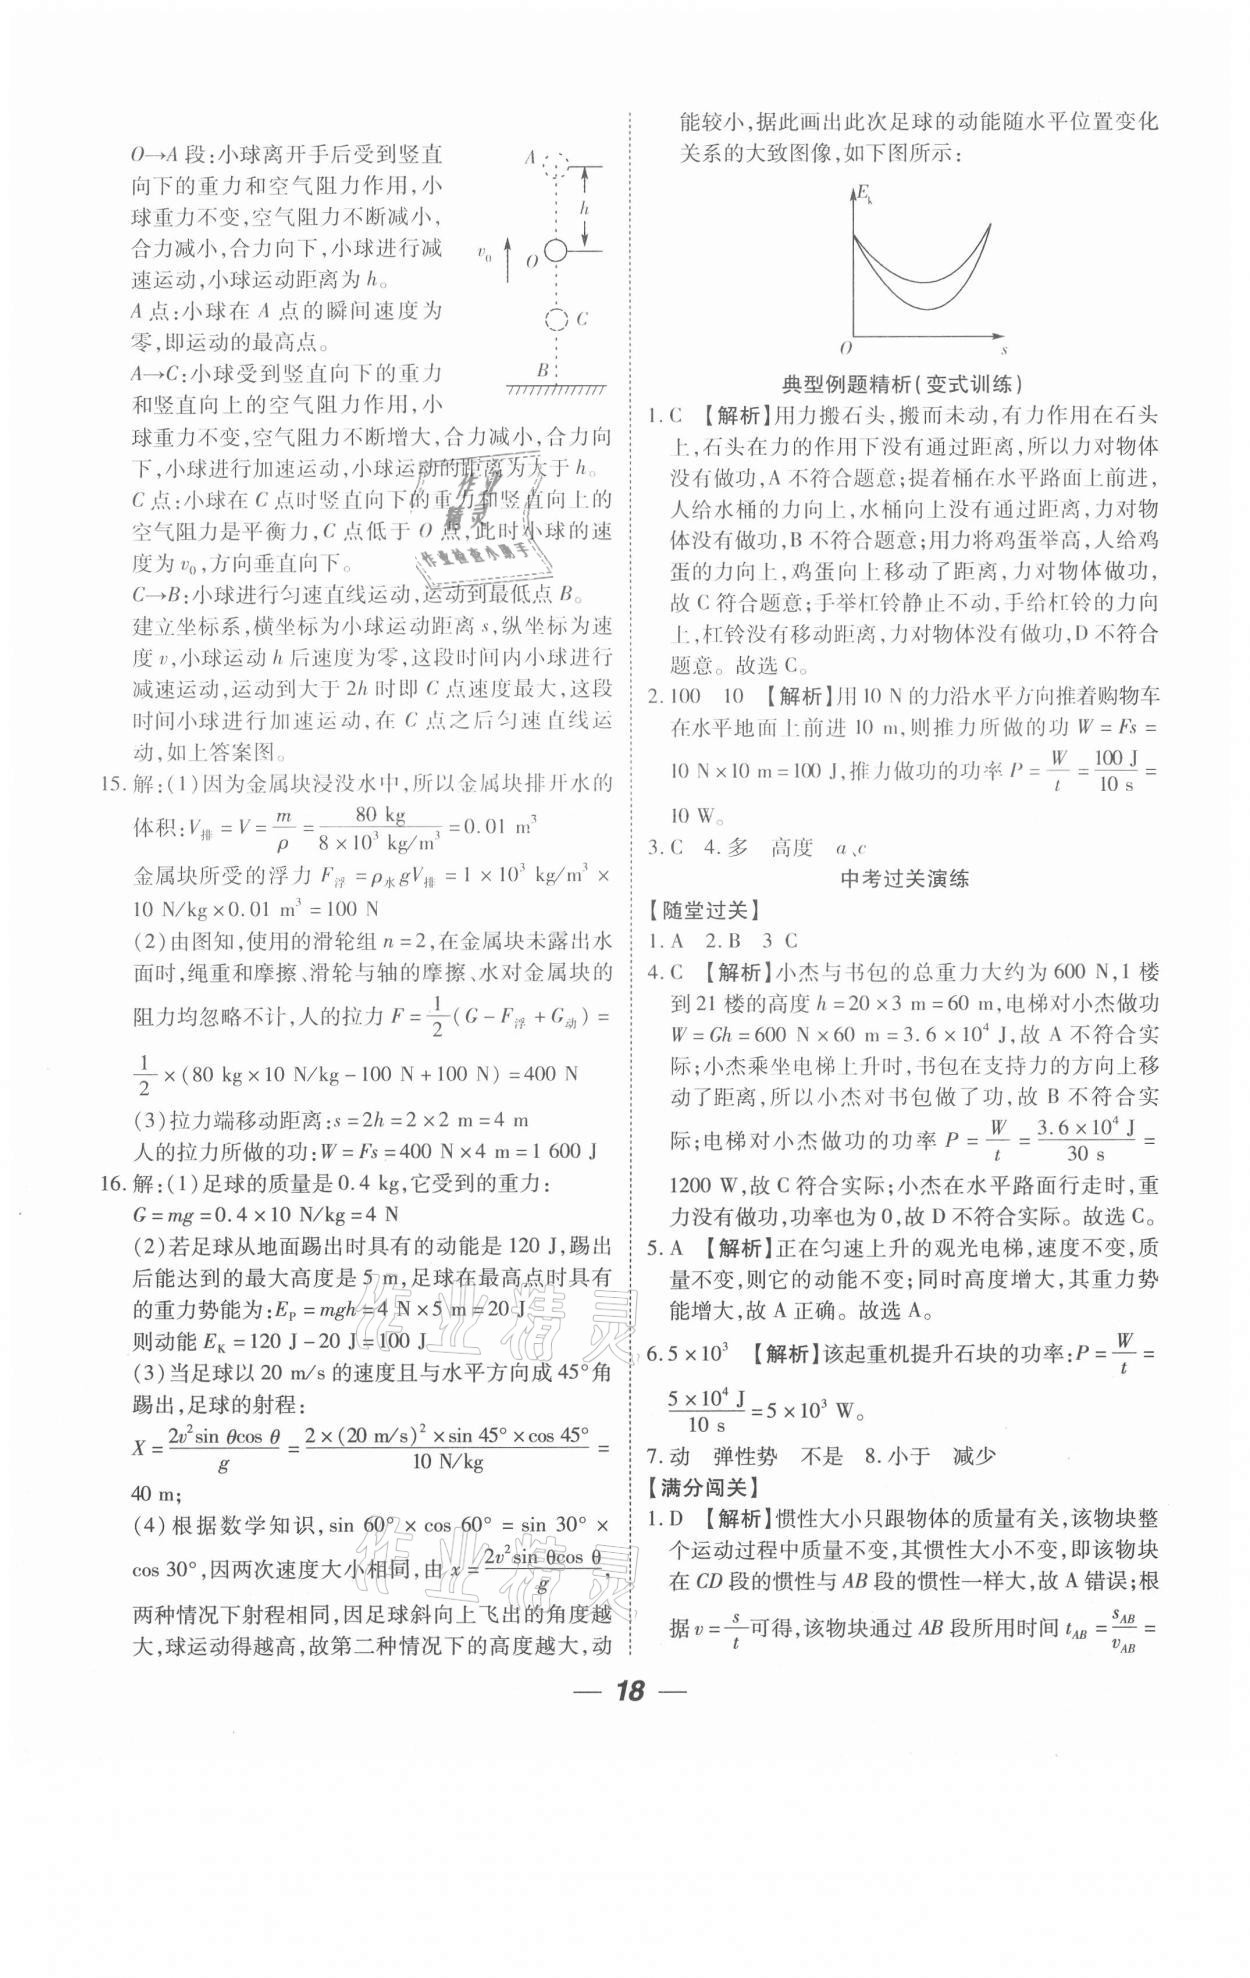 O→A段:小球离开手后受到竖直
向下的重力和空气阻力作用,小
球重力不变,空气阻力不断减小,
合力减小,合力向下,小球进行减
速运动,小球运动距离为h。
A点:小球在A点的瞬间速度为
零,即运动的最高点。
A→C:小球受到竖直向下的重力
和竖直向上的空气阻力作用,小
A
h
v₀
O
C
B
球重力不变,空气阻力不断增大,合力减小,合力向
下,小球进行加速运动,小球运动的距离为大于h。
C点:小球在C点时竖直向下的重力和竖直向上的
空气阻力是平衡力,C点低于O点,此时小球的速
度为v₀,方向垂直向下。
C→B:小球进行匀速直线运动,运动到最低点B。
建立坐标系,横坐标为小球运动距离s,纵坐标为速
度v,小球运动h后速度为零,这段时间内小球进行
减速运动,运动到大于2h时即C点速度最大,这段
时间小球进行加速运动,在C点之后匀速直线运
动,如上答案图。
15.解:(1)因为金属块浸没水中,所以金属块排开水的
体积:V排=V=m/ρ=80 kg/(8×10³ kg/m³)=0.01 m³
金属块所受的浮力F浮=ρ水gV排=1×10³ kg/m³×
10 N/kg×0.01 m³=100 N
(2)由图知,使用的滑轮组n=2,在金属块未露出水
面时,绳重和摩擦、滑轮与轴的摩擦、水对金属块的
阻力均忽略不计,人的拉力F=1/2(G-F浮+G动)=
1/2×(80 kg×10 N/kg-100 N+100 N)=400 N
(3)拉力端移动距离:s=2h=2×2 m=4 m
人的拉力所做的功:W=Fs=400 N×4 m=1 600 J
16.解:(1)足球的质量是0.4 kg,它受到的重力:
G=mg=0.4×10 N/kg=4 N
(2)若足球从地面踢出时具有的动能是120 J,踢出
后能达到的最大高度是5 m,足球在最高点时具有
的重力势能为:E_P=mgh=4 N×5 m=20 J
则动能E_K=120 J-20 J=100 J
(3)当足球以20 m/s的速度且与水平方向成45°角
踢出,足球的射程:
X=2v²sin θcos θ/g=2×(20 m/s)²×sin 45°×cos 45°/10 N/kg=
40 m;
(4)根据数学知识,sin 60°×cos 60°=sin 30°×
cos 30°,因两次速度大小相同,由x=2v²sin θcos θ/g,
两种情况下射程相同,因足球斜向上飞出的角度越
大,球运动得越高,故第二种情况下的高度越大,动
能较小,据此画出此次足球的动能随水平位置变化
关系的大致图像,如下图所示:
E_k
O
s
典型例题精析(变式训练)
1.C 【解析】用力搬石头,搬而未动,有力作用在石头
上,石头在力的作用下没有通过距离,所以力对物体
没有做功,A不符合题意;提着桶在水平路面上前进,
人给水桶的力向上,水桶向上没有通过距离,力对物
体没有做功,B不符合题意;用力将鸡蛋举高,人给鸡
蛋的力向上,鸡蛋向上移动了距离,力对物体做功,
故C符合题意;手举杠铃静止不动,手给杠铃的力向
上,杠铃没有移动距离,力对物体没有做功,D不符合
题意。故选C。
2.100 10 【解析】用10 N的力沿水平方向推着购物车
在水平地面上前进10 m,则推力所做的功W=Fs=
10 N×10 m=100 J,推力做功的功率P=W/t=100 J/10 s=
10 W。
3.C 4.多 高度 a、c
中考过关演练
【随堂过关】
1.A 2.B 3 C
4.C 【解析】小杰与书包的总重力大约为600 N,1楼
到21楼的高度h=20×3 m=60 m,电梯对小杰做功
W=Gh=600 N×60 m=3.6×10⁴ J,故A不符合实
际;小杰乘坐电梯上升时,书包在支持力的方向上移
动了距离,所以小杰对书包做了功,故B不符合实
际;电梯对小杰做功的功率P=W/t=3.6×10⁴ J/30 s=
1200 W,故C符合实际;小杰在水平路面行走时,重
力没有做功,功率也为0,故D不符合实际。故选C。
5.A 【解析】正在匀速上升的观光电梯,速度不变,质
量不变,则它的动能不变;同时高度增大,其重力势
能增大,故A正确。故选A。
6.5×10³ 【解析】该起重机提升石块的功率:P=W/t=
5×10⁴ J/10 s=5×10³ W。
7.动 弹性势 不是 8.小于 减少
【满分闯关】
1.D 【解析】惯性大小只跟物体的质量有关,该物块整
个运动过程中质量不变,其惯性大小不变,即该物块
在CD段的惯性与AB段的惯性一样大,故A错误;根
据v=s/t可得,该物块通过AB段所用时间t_AB=s_AB/v_AB=
— 18 —
作业
精灵
作业检查小助手
作业精灵
作业精灵